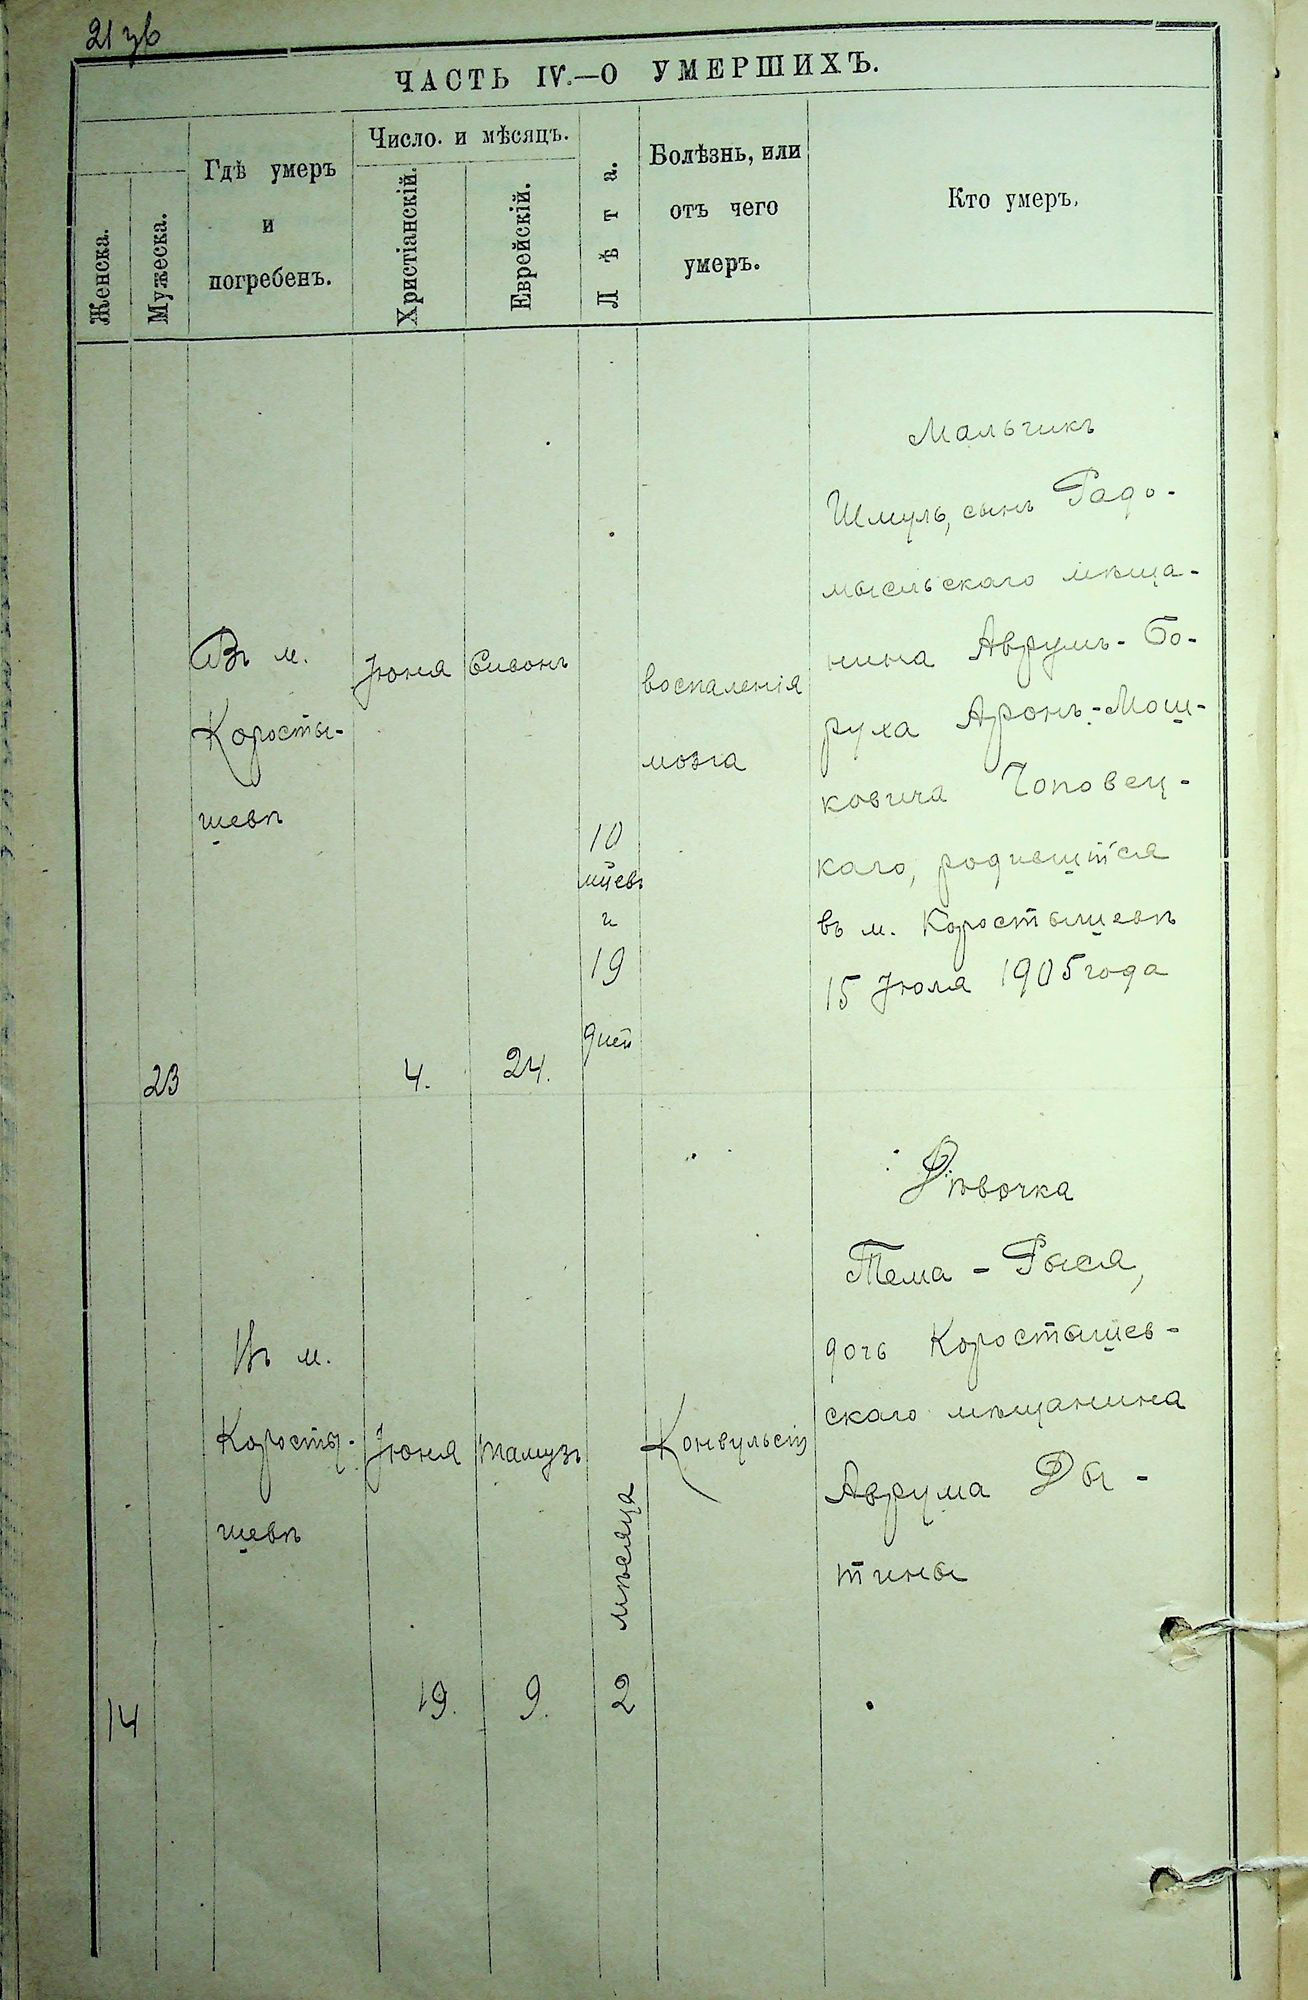 21 зв
ЧАСТЬ IV.—О УМЕРШИХЪ.
Женска.
Мужеска.
Гдѣ умеръ
и
погребенъ.
Число. и мѣсяцъ.
Христіанскій.
Еврейскій.
Лѣта.
Болѣзнь, или
отъ чего
умеръ.
Кто умеръ.
23
Въ м.
Коросты-
шевѣ
Іюня
4.
Сивонъ
24.
10
м̃цевъ
и
19
дней
воспаленія
мозга
Мальчикъ
Шмуль, сынъ Радо-
мысльскаго мѣща-
нина Аврумъ-Бо-
руха Аронъ-Мош-
ковича Чоповец-
каго, родившійся
въ м. Коростышевѣ
15 Іюля 1905 года
14
Въ м.
Коросты-
шевѣ
Іюня
19.
Тамузъ
9.
2 мѣсяца
Конвульсій
Дѣвочка
Тема - Рыся,
дочь Коростышев-
скаго мѣщанина
Аврума Ды-
тины